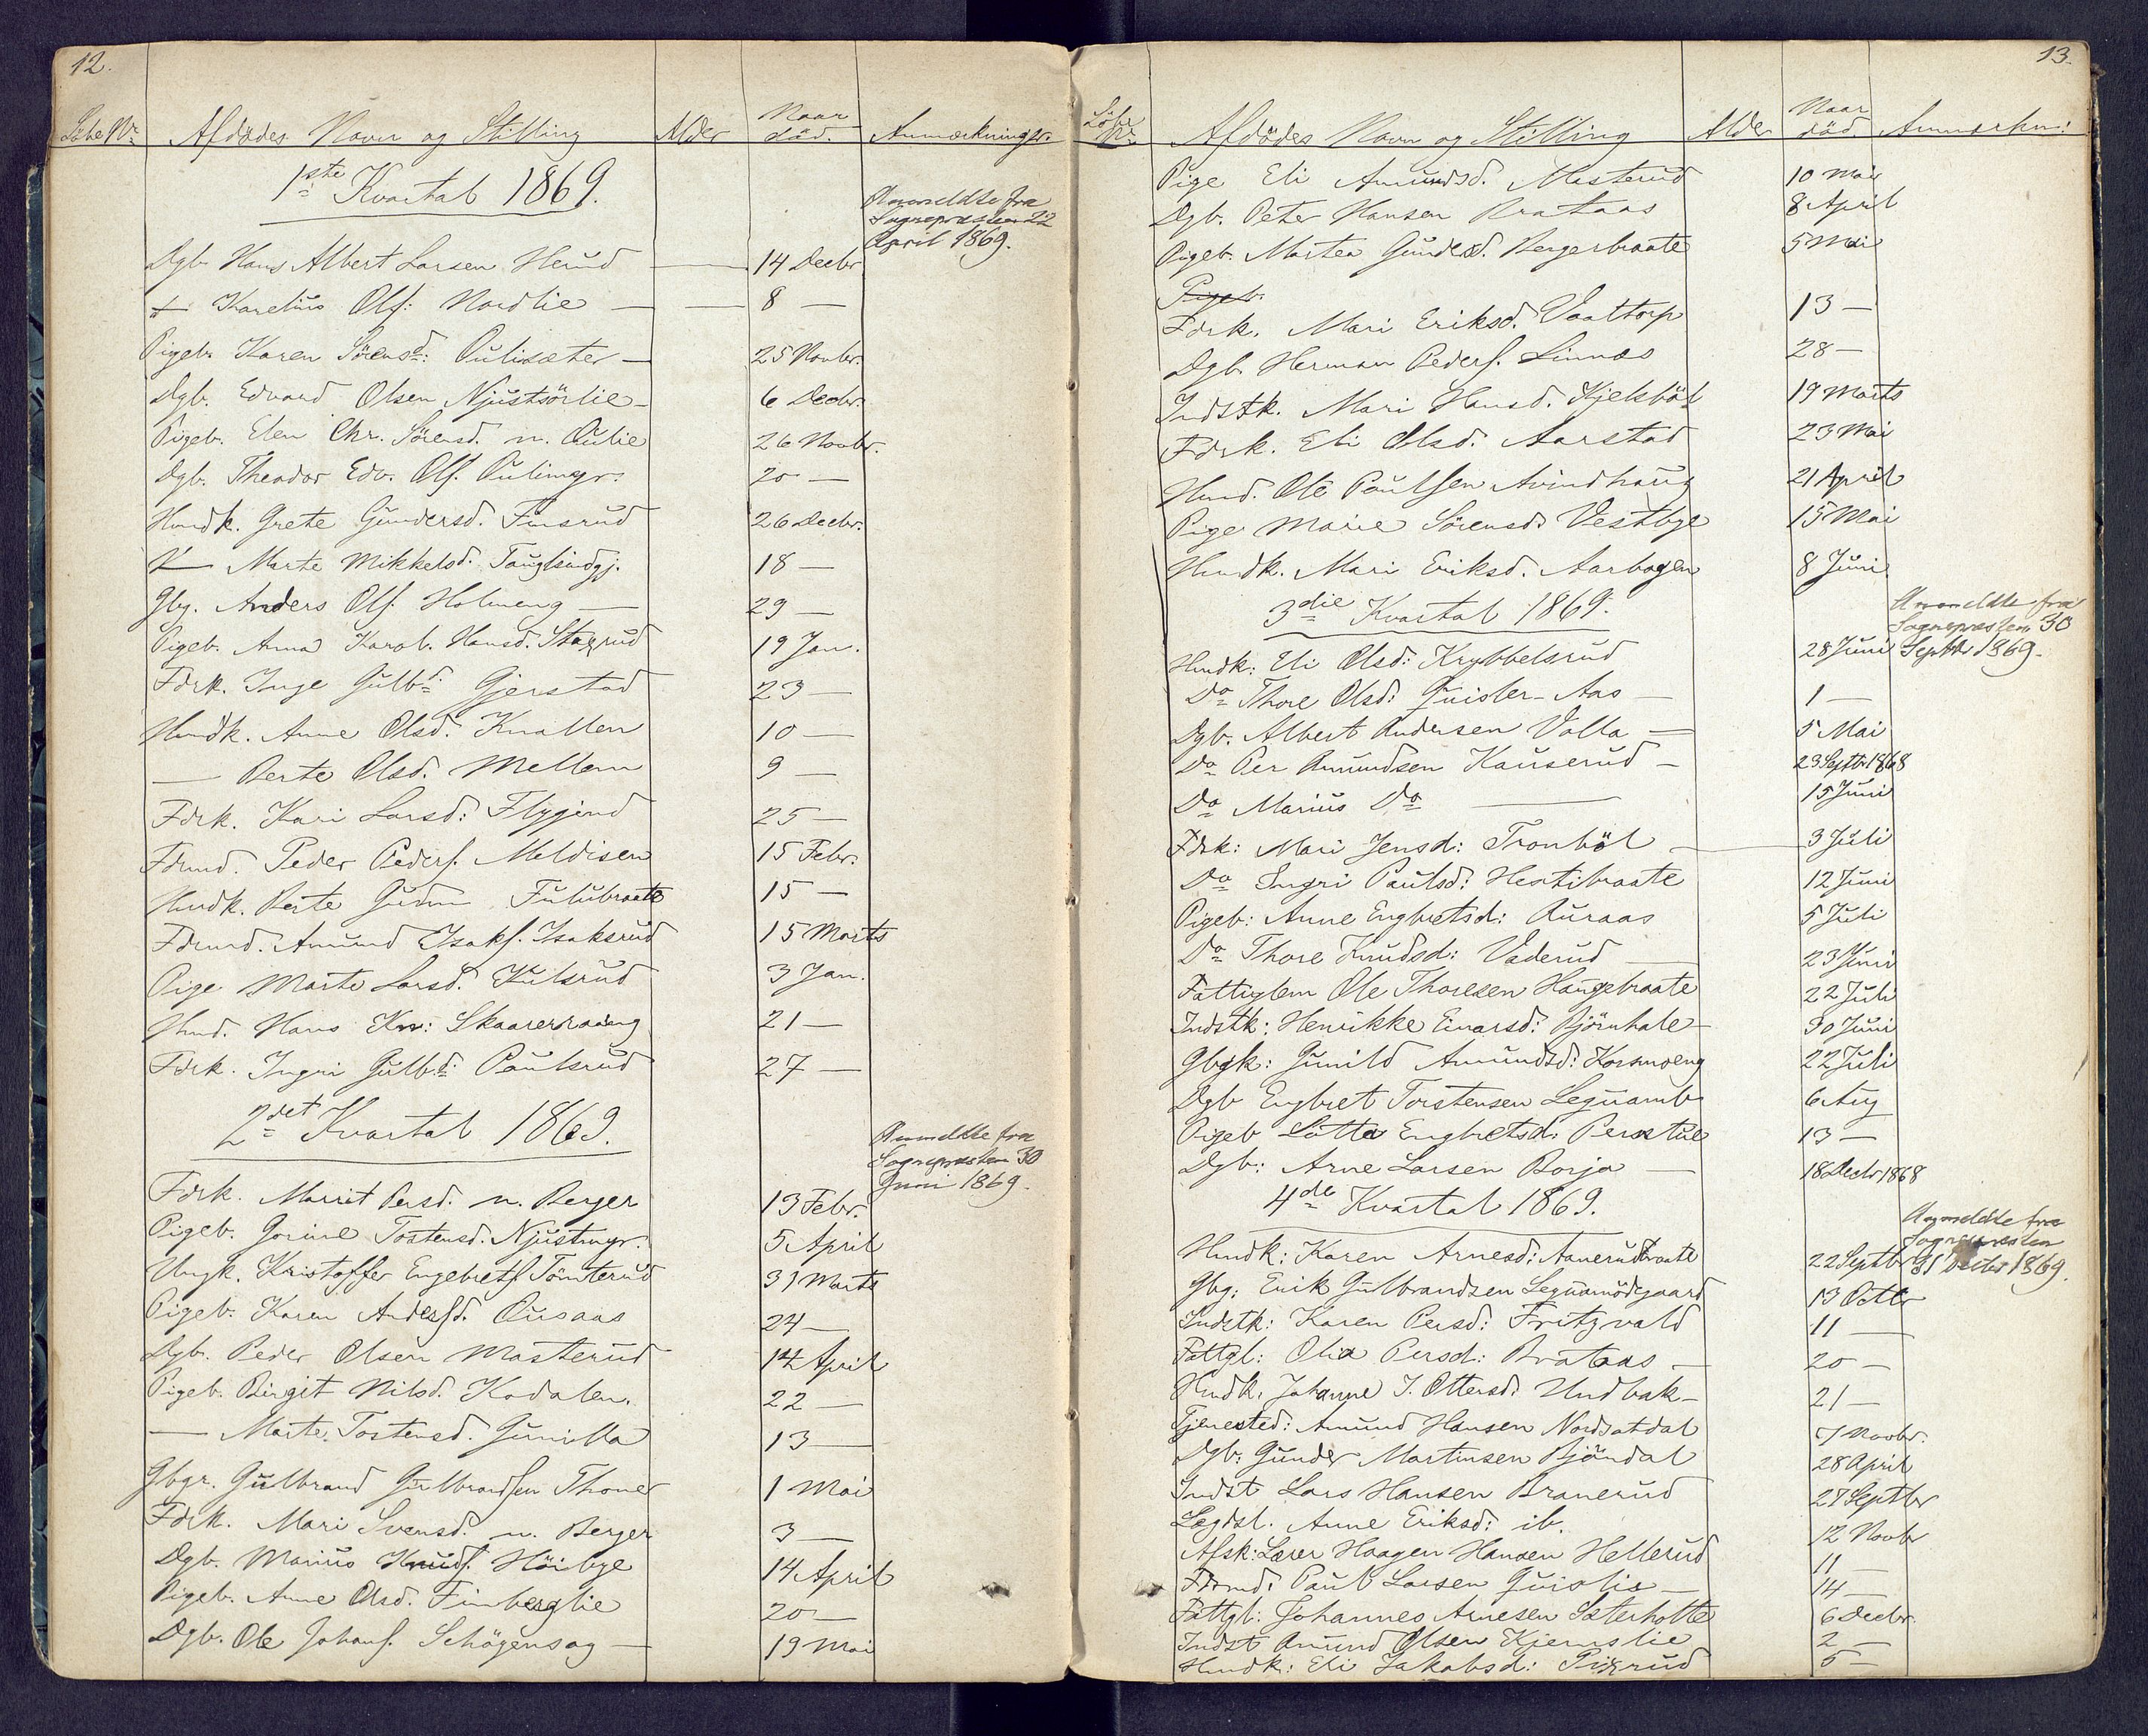 12.
Løbe Nr. Afdødes Navn og Stilling Alder Naar død. Anmærkninger.
1ste Kvartal 1869.
Anmeldte fra
Sognepresten 22
April 1869.
Dgb. Hans Albert Larsen Herud — 14 Decbr
+ Karelius Ols: Nordlie — 8 —
Pigeb. Karen Sørensd: Oulisæter — 25 Novbr.
Dgb. Edvard Olsen Njustsørlie — 6 Decbr.
Pigeb. Elen Chr. Sørensd. n. Oulie 26 Novbr.
Dgb. Theodor Edv. Ols. Oulimyr. 20 —
Hmdk. Grete Gundersd. Finsrud 26 Decbr.
— Marte Mikkelsd. 18 —
Gbg. Anders Ols. Holmeng — 29 —
Pigeb. Anna Karol. Hansd. Stagrud 19 Jan.
Fdrk. Inge Gulbd. Gjerstad 23 —
Hmdk. Anne Olsd. Knatten 10 —
— Berte Olsd. Mellem 9 —
Fdrk. Kari Larsd: Flygind 25 —
Fdrmd. Peder Peders. Meldisen 15 Febr.
Hmdk. Berte Gudm Fulubraate 15 —
Fdrmd. Amund Isaks. Isaksrud 15 Marts
Pige Marte Larsd. Kulsrud 3 Jan.
Hmd. Hans Kn: 21 —
Fdrk. Ingri Gulb.d: Paulsrud 27 —
2det Kvartal 1869.
Anmeldte fra
Sognepresten 30
Juni 1869.
Fdrk. Marrit Persd. n. Berger 13 Febr.
Pigeb. Gorine Tostensd. Njustmyr. 5 April
Ungk. Kristoffer Engebrets. Tømterud 31 Marts
Pigeb. Karen Andersd. Ousaas 24 —
Dgb. Peder Olsen Masterud 14 April
Pigeb. Birgit Nilsd. Kodalen. 22 —
— Marte Tostensd. Gunilla 13 —
Gbgr. Gulbrand Gulbrandsen Thoner 1 Mai
Fdrk. Mari Svensd. n. Berger 3 —
Dgb. Marius Knuds. Høibye 14 April
Pigeb. Anne Olsd. Finbergslie 20 —
Dgb. Ole Johans. Schøgensag — 19 Mai
13.
Løbe Nr. Afdødes Navn og Stilling Alder Naar død Anmærkn:
Pige Eli Amundsd. Masterud 10 Mai
Dgb. Peter Hansen Brataas 8 April
Pigeb. Martea Gundersd. Bergerbraate 5 Mai
Pigeb.
Fdrk. Mari Eriksd. Vaaltorp 13 —
Dgb. Herman Peders. Linnæs 28 —
Indstk. Mari Hansd. Kjelsbøl 19 Marts
Fdrk. Eli Olsd. Aarstad 23 Mai
Hmd. Ole Paulsen Avindhaug 21 April
Pige Marie Sørensd. Vestbye 15 Mai
Hmdk. Mari Eriksd. Aarbogen 8 Juni
3die Kvartal 1869.
Anmeldte fra
Sognepresten 30
Septbr 1869.
Hmdk: Eli Olsd: Krybbelsrud 28 Juni
Do Thore Olsd: Quisler-Aas — 1 —
Dgb. Albert Andersen Valla — 5 Mai
Do Per Amundsen Kauserud — 23 Septbr 1868
Do Marius Do — 15 Juni
Fdrk: Mari Jensd: Tronbøl — 3 Juli
Do Ingri Paulsd: Hestibraate 12 Juni
Pigeb: Anne Engbretsd: Auraas 5 Juli
Do Thore Knudsd: Vaderud — 23 Juni
Fattiglem Ole Thoresen Haugebraate 22 Juli
Indstk: Henrikke Einarsd: Bjørnhole — 30 Juni
Gbgk: Gunild Amundsd: Korsmoeng 22 Juli
Dgb Engbret Torstensen Leguamb 6 Aug
Pigeb Lotta Engbretsd: Perstue 13 —
Dgb: Arne Larsen Borja — 18 Decbr 1868
4de Kvartal 1869.
Anmeldte fra
Sognepresten
31 Decbr 1869.
Hmdk: Karen Arnesd: Aanerudbraate 22 Septbr
Gbg: Erik Gulbrandsen Leguamødegaard 13 Octbr
Indstk: Karen Persd: Fritzvold 11 —
Fattgl: Olia Persd: Brataas — 20 —
Hmdk. Johanne J. Ottersd: Undbak — 21 —
Tjenested: Amund Hansen Nordsatdal 7 Novbr.
Dgb: Gunder Martinsen Bjøndal 28 April
Indst Lars Hansen Branerud 27 Septbr
Lægdsl. Anne Eriksd: ib. 12 Novbr
Afsk: Lærer Haagen Hansen Hellerud 11 —
Fdrmd: Paul Larsen Quislie — 14 —
Fattgl: Johannes Arnesen Sæterholte 6 Decbr.
Indst Amund Olsen Kjernslie 2 —
Hmdk: Eli Jakobsd: Pigerud 5 —